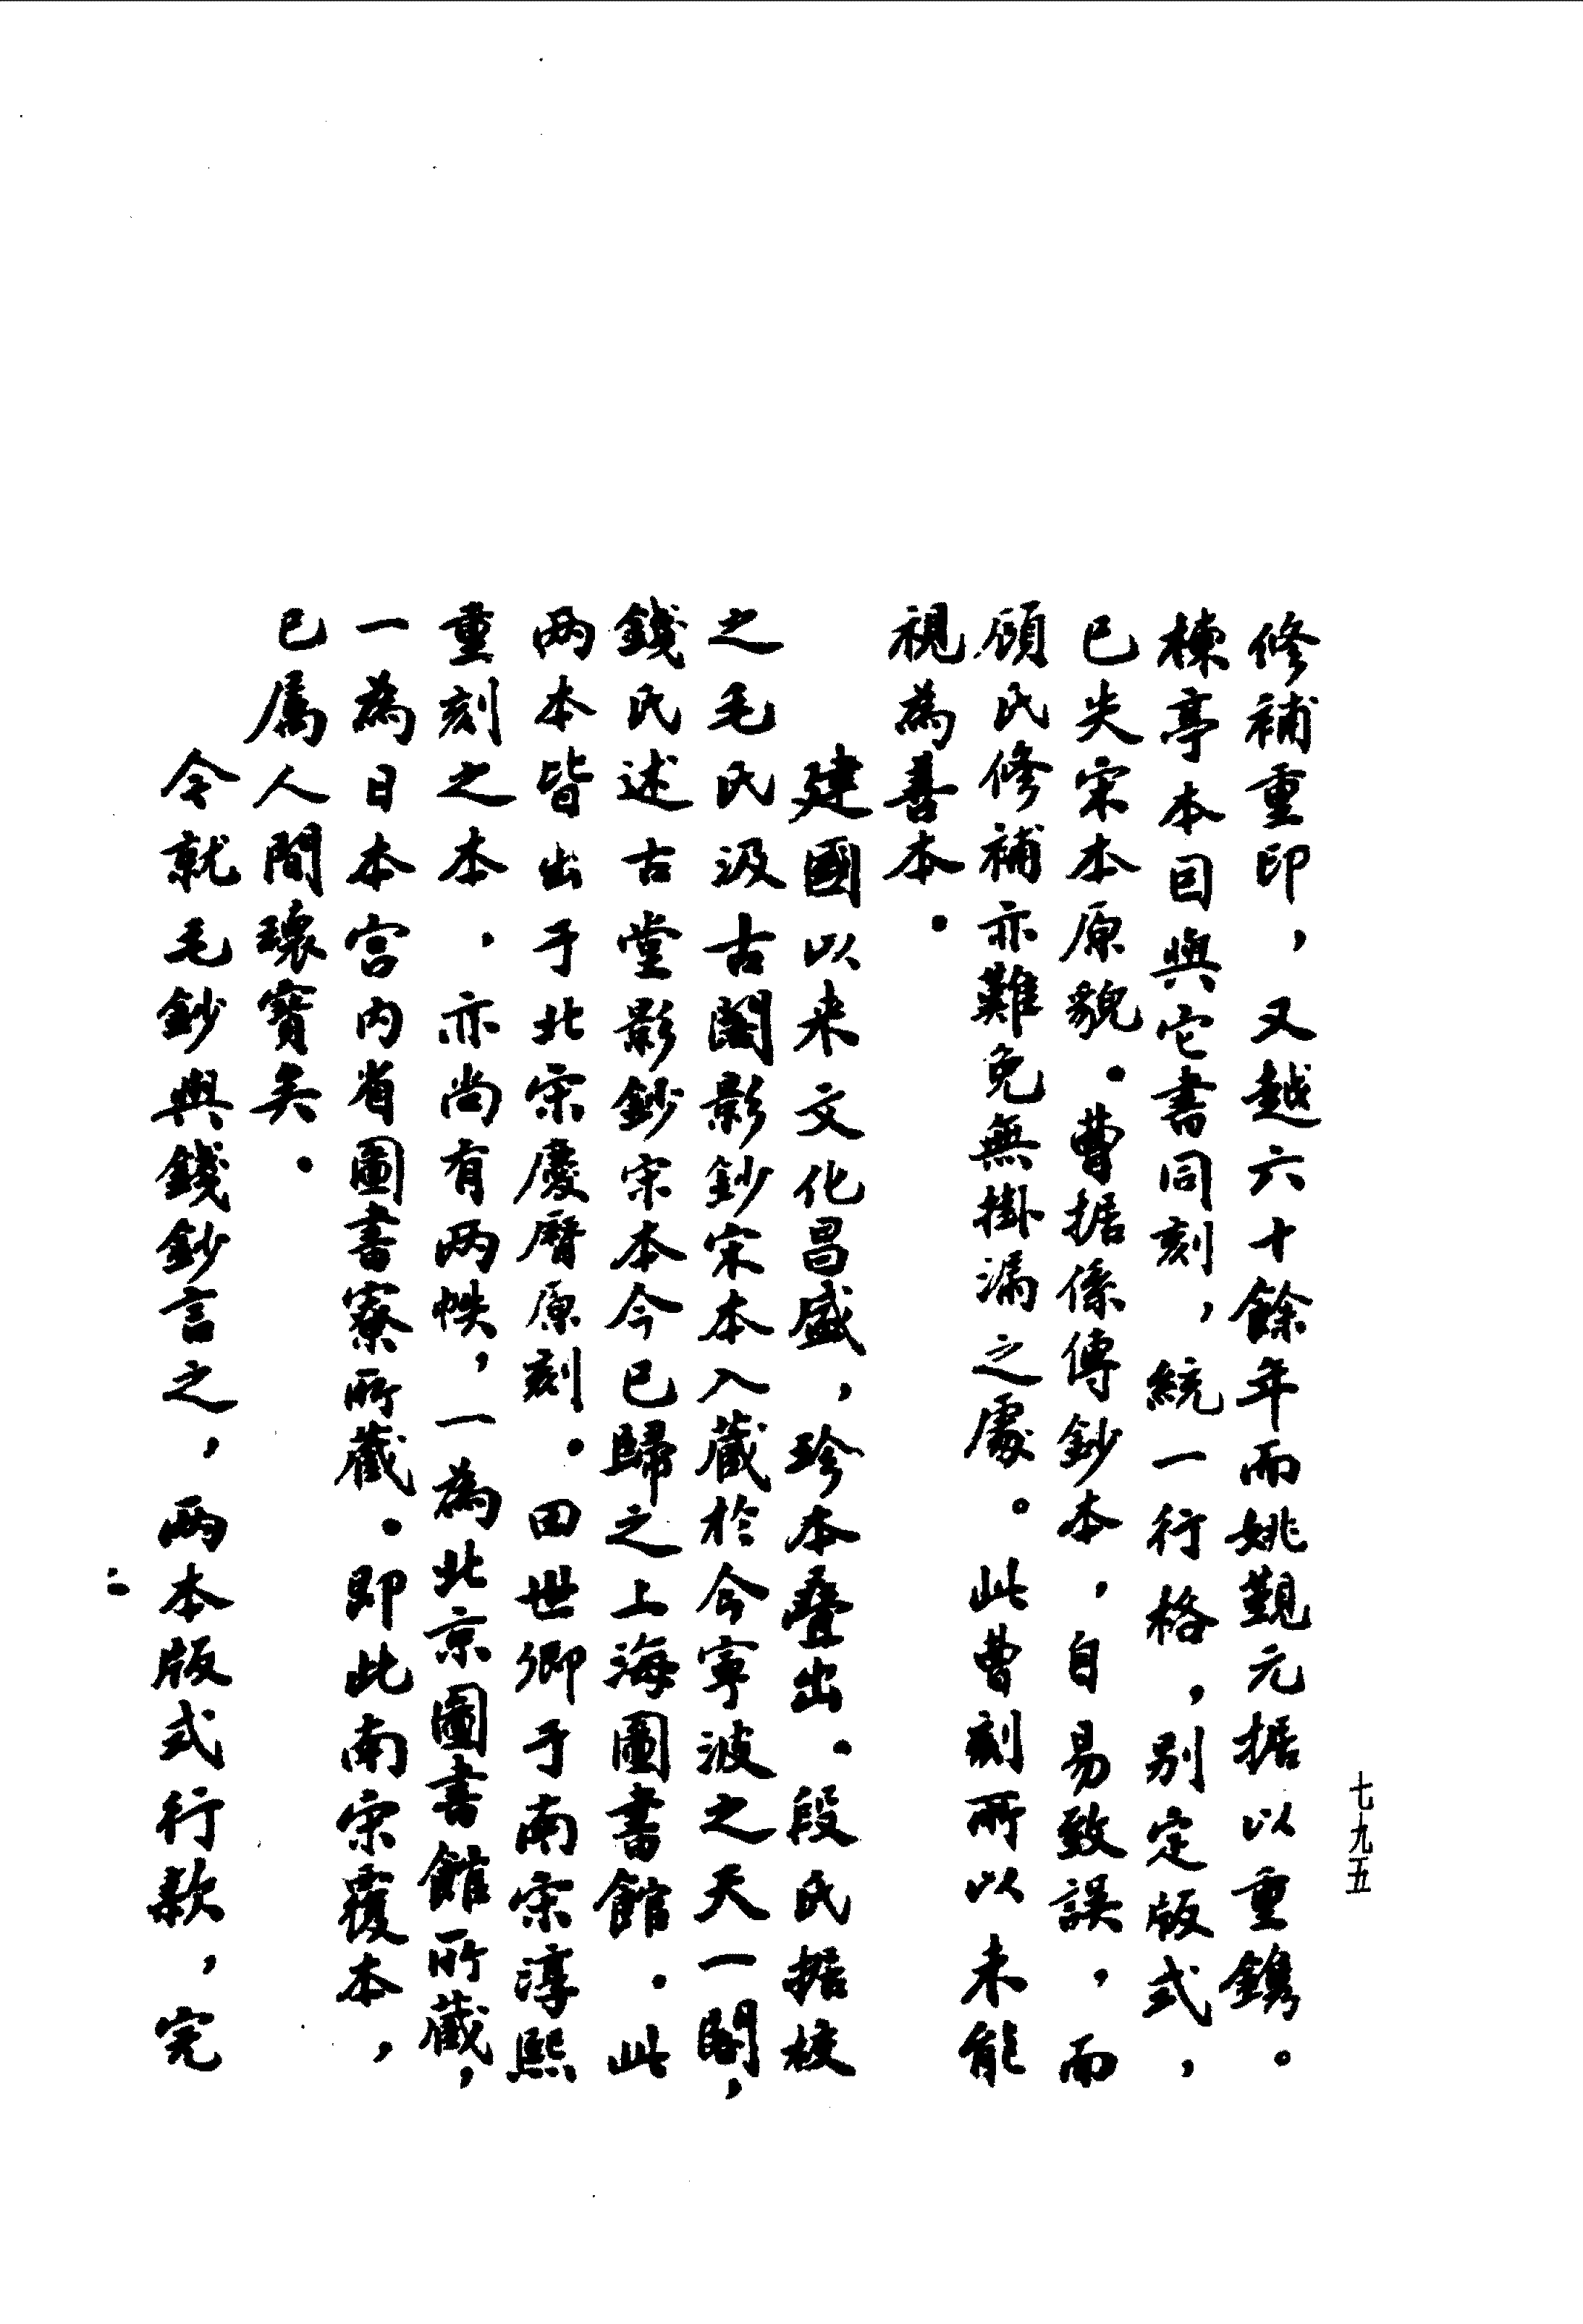 七九五
修補重印，又越六十餘年而姚覲元据以重鐫。
楝亭本因與它書同刻，統一行格，別定版式，
已失宋本原貌。曹据係傳鈔本，自易致誤，而
顧氏修補亦難免無掛漏之處。此曹刻所以未能
視為善本。
建國以来文化昌盛，珍本叠出。段氏据校
之毛氏汲古閣影鈔宋本入藏於今寧波之天一閣，
錢氏述古堂影鈔宋本今已歸之上海圖書館。此
两本皆出于北宋慶曆原刻。田世卿于南宋淳熙
重刻之本，亦尚有两帙，一為北京圖書館所藏，
一為日本宮内省圖書寮所藏。即此南宋覆本，
已属人間瓌寶矣。
今就毛鈔與錢鈔言之，两本版式行款，完